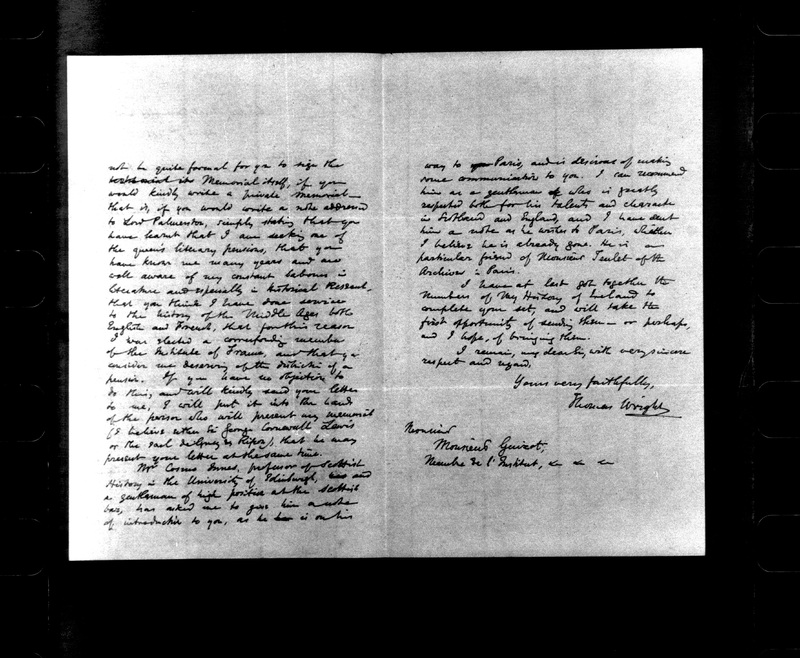 not be quite formal for you to sign the
Memorial itself, if you
would kindly write a private memorial—
that is, if you would write a note addressed
to Lord Palmerston, simply stating that you
have learnt that I am seeking one of
the queen's literary pensions, that you
have known me many years and are
well aware of my constant labours in
literature and especially in historical Research,
that you think I have done service
to the history of the Middle Ages both
English and French, that for this reason
I was elected a corresponding member
of the Institute of France, and that you
consider me deserving of the distinction of a
pension. If you have no objection to
do this, and will kindly send your letter
to me, I will put it into the hands
of the person who will present my memorial
(I believe either Sir George Cornewall Lewis
or the Earl de Grey & Ripon), that he may
present your letter at the same time.
Mr Cosmo Innes, professor of Scottish
History in the University of Edinburgh, and
a gentleman of high position at the Scottish
bar, has asked me to give him a note
of introduction to you, as he is on his
way to Paris, and is desirous of making
some communication to you. I can recommend
him as a gentleman who is greatly
respected both for his talents and character
in Scotland and England, and I have sent
him a note as he writes to Paris, whither
I believe he is already gone. He is a
particular friend of Monsieur Teulet of the
Archives in Paris.
I have at last got together the
Numbers of my History of Ireland to
complete your set, and will take the
first opportunity of sending them — or perhaps,
and I hope, of bringing them.
I remain, my dear Sir, with very sincere
respect and regard,
Yours very faithfully,
Thomas Wright
Monsieur
Monsieur Guizot,
Membre de l'Institut, &c &c &c